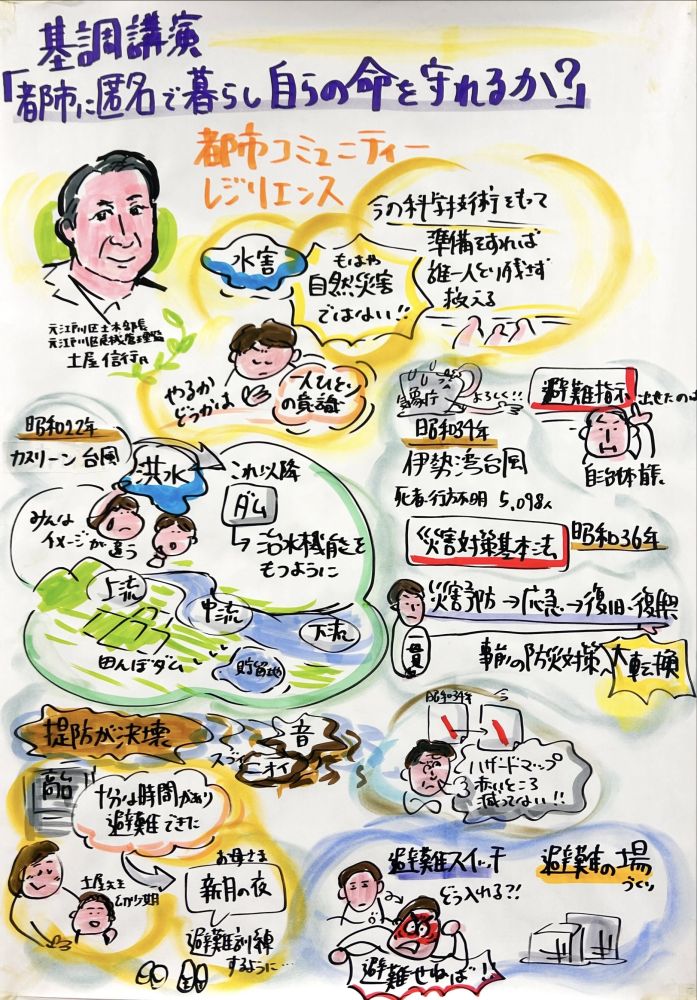 基調講演
「都市に匿名で暮らし自らの命を守れるか？」
都市コミュニティー
レジリエンス
今の科学技術をもって
準備をすれば
誰一人とり残さず
救える
水害
もはや
自然災害
ではない!!
元江戸川区土木部長
元江戸川区危機管理監
土屋信行氏
やるか
どうかは
一人ひとり
の意識
気象庁
よろしく!!
避難指示
出せたのは
自治体首長
昭和22年
カスリーン台風
洪水
これ以降
ダム
→治水機能を
もつように
みんな
イメージが
違う
上流
中流
下流
田んぼダム
貯留地
昭和34年
伊勢湾台風
死者・行方不明 5,098人
災害対策基本法
昭和36年
災害予防→応急→復旧・復興
一貫
事前の防災対策へ
大転換
堤防が決壊
音
スゴイ
ニオイ
昭和34年
今
ハザードマップ
赤いところ
減ってない!!
十分な時間があり
避難できた
土屋先生
少年期
お母さま
新月の夜
避難訓練
するように…
避難スイッチ
どう入れる?!
避難せねば!!
避難の場
づくり